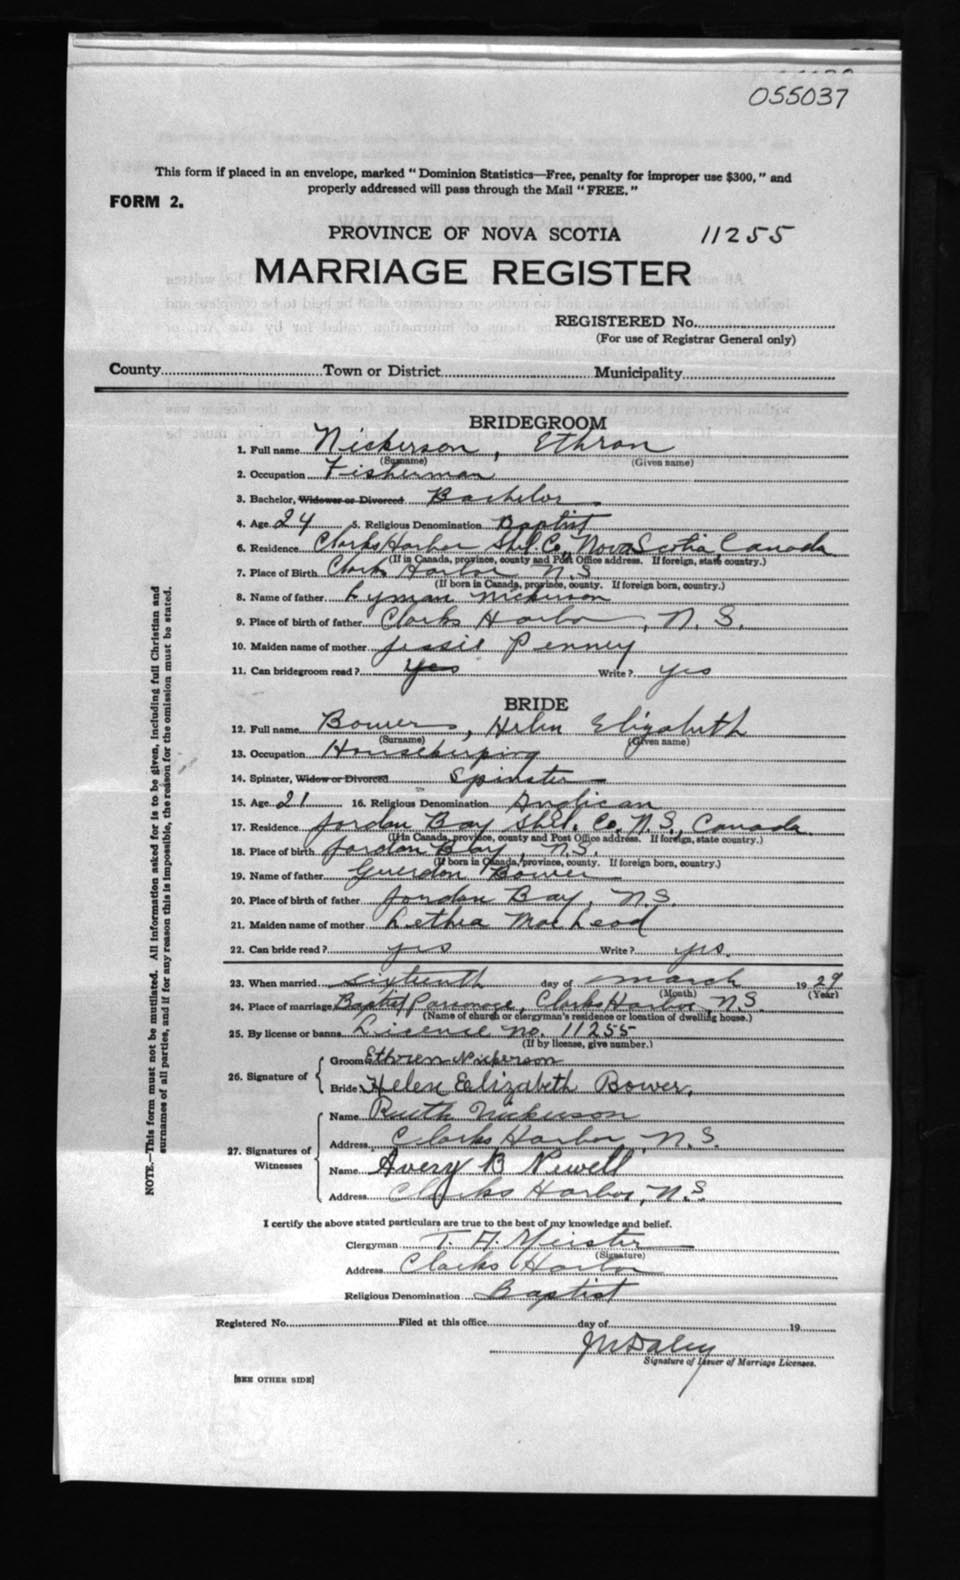 055037
This form if placed in an envelope, marked "Dominion Statistics—Free, penalty for improper use $300," and
properly addressed will pass through the Mail "FREE."
FORM 2.
PROVINCE OF NOVA SCOTIA 11255
MARRIAGE REGISTER
REGISTERED No.
(For use of Registrar General only)
County Town or District Municipality
BRIDEGROOM
1. Full name Nickerson, Ethron
(Surname) (Given name)
2. Occupation Fisherman
3. Bachelor, Widower or Divorced Bachelor
4. Age 24 5. Religious Denomination Baptist
6. Residence Clarks Harbor Shel. Co., Nova Scotia, Canada
(If in Canada, province, county and Post Office address. If foreign, state country.)
7. Place of Birth Clarks Harbor N.S.
(If born in Canada, province, county. If foreign born, country.)
8. Name of father Lyman Nickerson
9. Place of birth of father Clarks Harbor, N.S.
10. Maiden name of mother Jessie Penney
11. Can bridegroom read? Yes Write? yes
BRIDE
12. Full name Bower, Helen Elizabeth
(Surname) (Given name)
13. Occupation Housekeeping
14. Spinster, Widow or Divorced Spinster
15. Age 21 16. Religious Denomination Anglican
17. Residence Jordan Bay Shel. Co. N.S., Canada.
(If in Canada, province, county and Post Office address. If foreign, state country.)
18. Place of birth Jordan Bay, N.S.
(If born in Canada, province, county. If foreign born, country.)
19. Name of father Guerdon Bower
20. Place of birth of father Jordan Bay, N.S.
21. Maiden name of mother Lethea MacLeod
22. Can bride read? yes Write? yes.
23. When married sixteenth day of march 1929
(Month) (Year)
24. Place of marriage Baptist Parsonage, Clarks Harbor, N.S.
(Name of church or clergyman's residence or location of dwelling house.)
25. By license or banns License no. 11255
(If by license, give number.)
26. Signature of Groom Ethren Nickerson
Bride Helen Eelizabeth Bower,
27. Signatures of Witnesses
Name Ruith Nickerson
Address Clarks Harbor, N.S.
Name Avery B Newell
Address Clarks Harbor, N.S.
I certify the above stated particulars are true to the best of my knowledge and belief.
Clergyman T. A. Meister
(Signature)
Address Clarks Harbor
Religious Denomination Baptist
Registered No. Filed at this office day of 19
Signature of Issuer of Marriage Licenses.
[SEE OTHER SIDE]
NOTE.—This form must not be mutilated. All information asked for is to be given, including full Christian and
surnames of all parties, and if for any reason this is impossible, the reason for the omission must be stated.